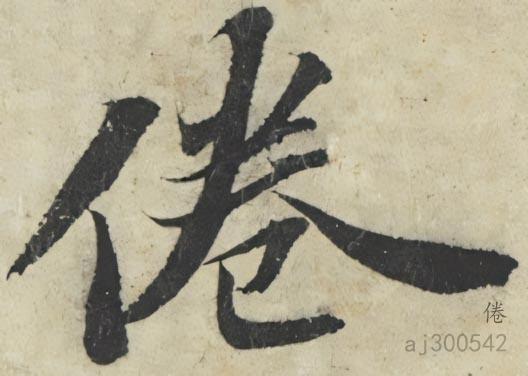 倦
倦
aj300542